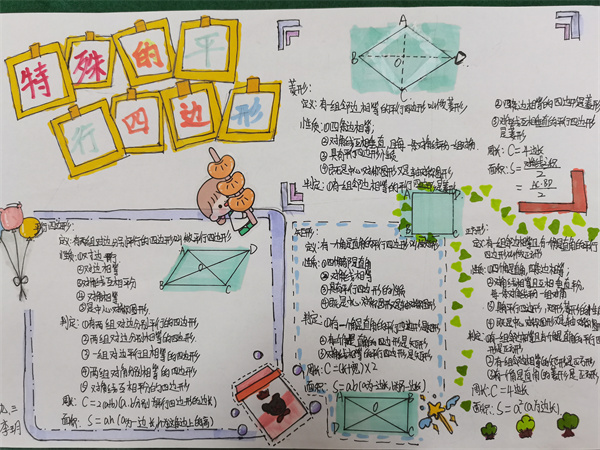 特殊的平
行四边形
菱形:
定义:有一组邻边相等的平行四边形叫做菱形
性质:①四条边相等;
②对角线互相垂直,且每一条对角线平分一组对角;
③具有平行四边形性质
④既是中心对称图形又是轴对称图形
判定:①有一组邻边相等的平行四边形是菱形
②四条边相等的四边形是菱形
③对角线互相垂直的平行四边形
是菱形
周长:C=4边长
面积:S=
2
=
AC·BD
2
A
B
D
C
O
行四边形:
定义:有两组对边分别平行的四边形叫做平行四边形
性质:①对边平行
②对边相等
③对角线互相平分
④对角相等
⑤是中心对称图形
判定:①有两组对边分别平行的四边形
②两组对边分别相等的四边形
③一组对边平行且相等的四边形
④两组对角分别相等的四边形
⑤对角线互相平分的四边形
周长:C=2(a+b)(a、b分别为平行四边形的边长)
面积:S=ah(a为一边长,h为这条边上的高)
A
D
O
B
C
矩形:
定义:有一个角是直角的平行四边形叫做矩形
性质:①四个角都是直角
②对角线相等
③具有平行四边形的性质
④既是中心对称图形又是轴对称图形
判定:①有一个角是直角的平行四边形是矩形
②有三个角是直角的四边形是矩形
③对角线相等的平行四边形是矩形
周长:C=(长+宽)×2
面积:S=ab(a为一边长,b为另一边长)
A
D
O
B
C
正方形:
定义:有一组邻边相等且有一个角是直角的平行
四边形叫做正方形
性质:①四个角都是直角,四条边相等;
②对角线相等且互相垂直平分,
每一条对角线平分一组对角
判定:①有一组邻边相等
②有一组邻边相等的矩形是正方形
③有一个角是直角的菱形是正方形
周长:C=4边长
面积:S=a²(a为边长)
九.三
李玥